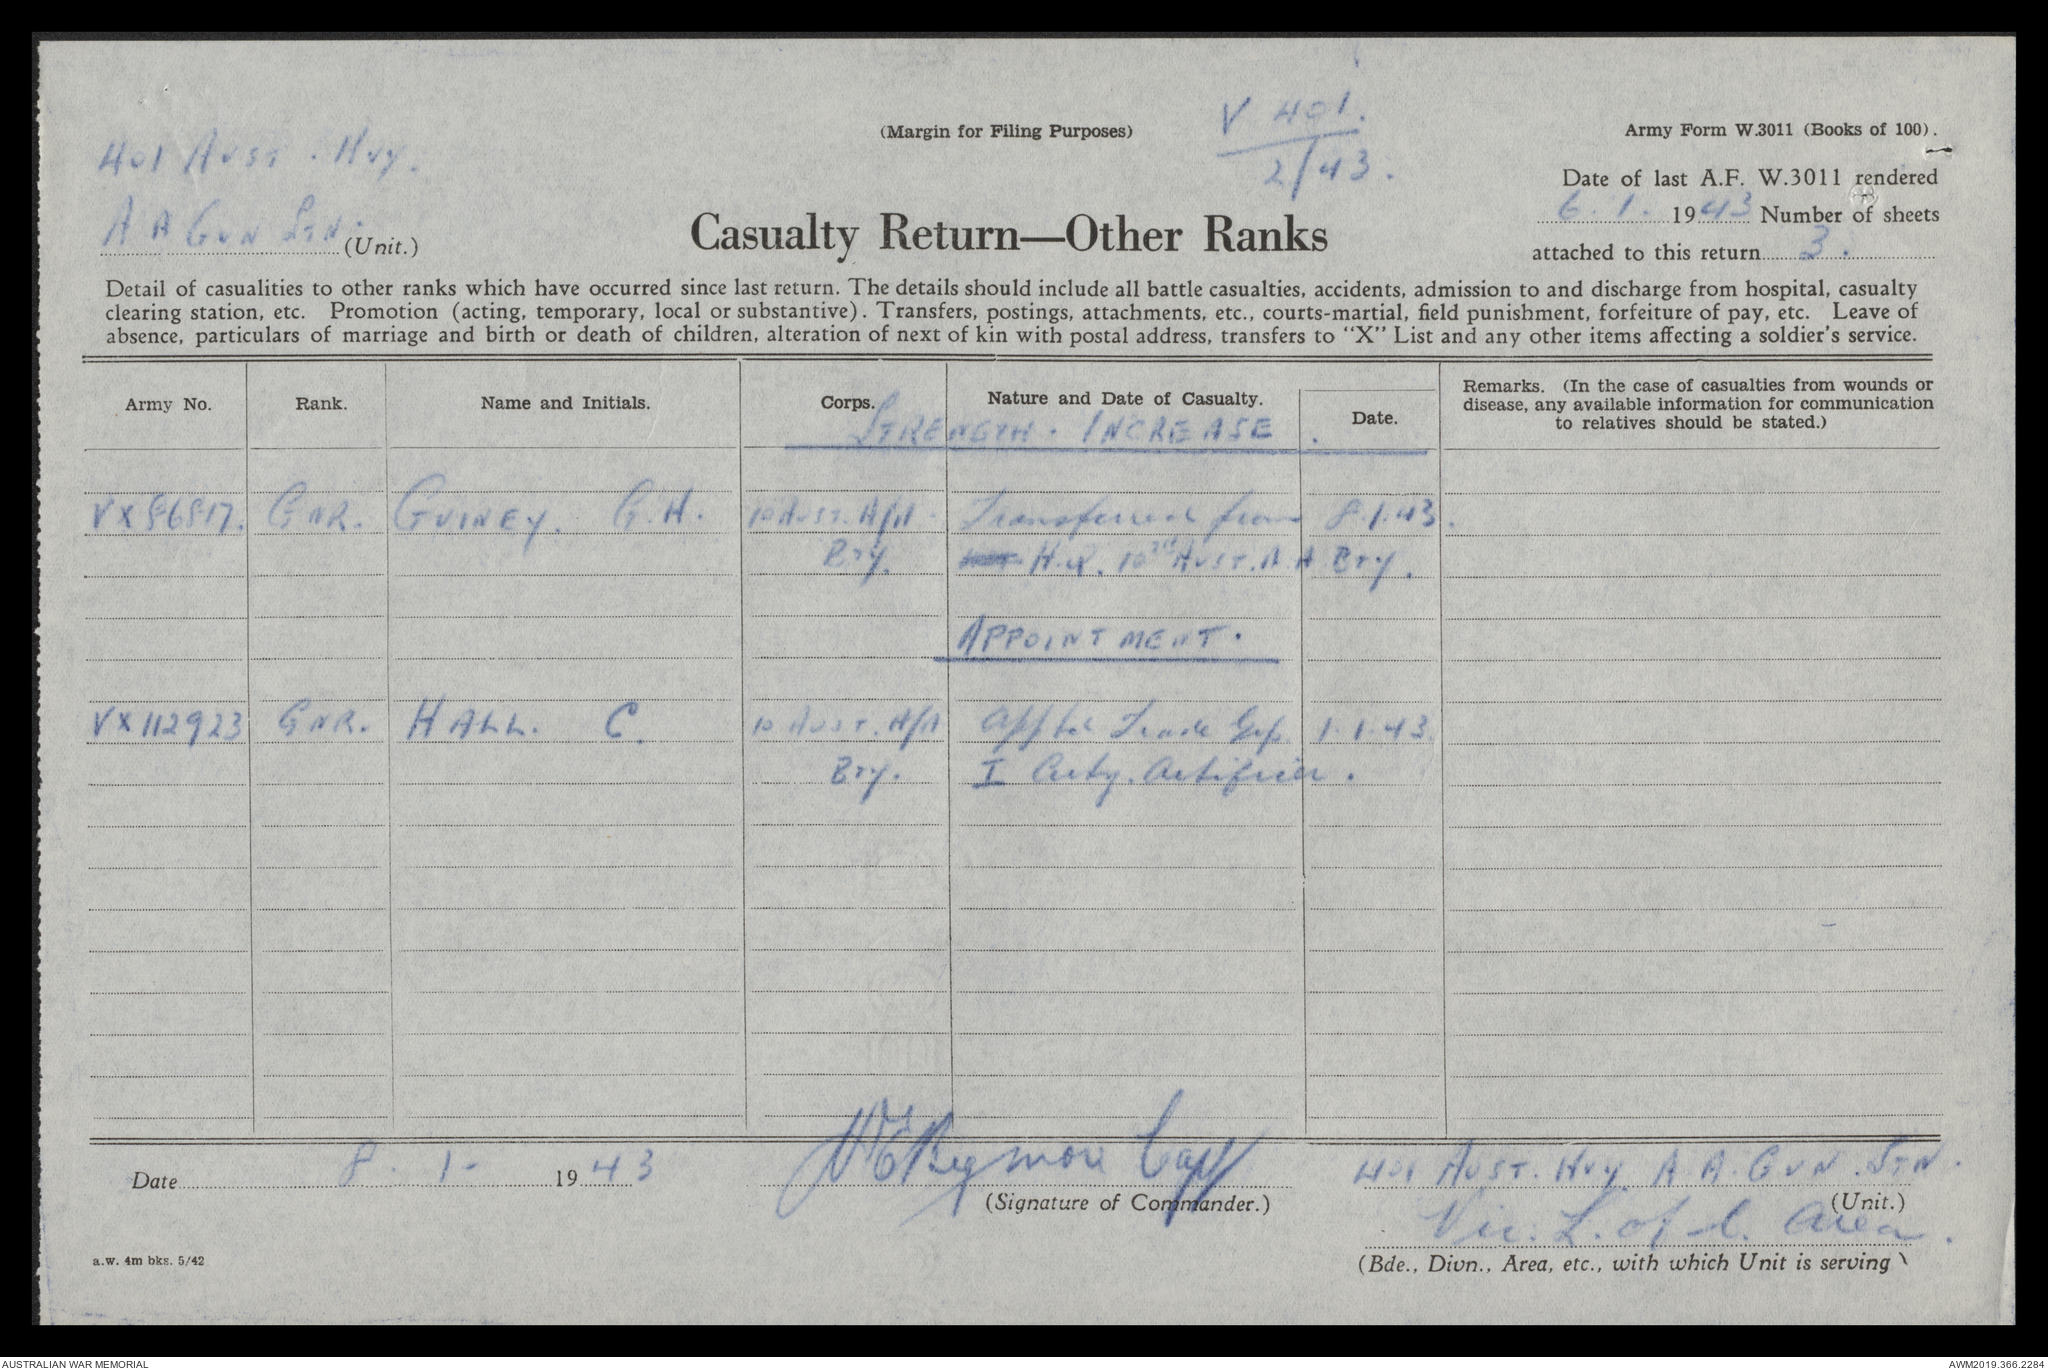 (Margin for Filing Purposes)
V 401.
2/43.
Army Form W.3011 (Books of 100).
401 AUST. HVY.
A A GUN STN.
(Unit.)
Date of last A.F. W.3011 rendered
6.1. 1943 Number of sheets
attached to this return 3.
Casualty Return—Other Ranks
Detail of casualities to other ranks which have occurred since last return. The details should include all battle casualties, accidents, admission to and discharge from hospital, casualty
clearing station, etc. Promotion (acting, temporary, local or substantive). Transfers, postings, attachments, etc., courts-martial, field punishment, forfeiture of pay, etc. Leave of
absence, particulars of marriage and birth or death of children, alteration of next of kin with postal address, transfers to "X" List and any other items affecting a soldier's service.
Army No. Rank. Name and Initials. Corps. Nature and Date of Casualty. Date. Remarks. (In the case of casualties from wounds or
disease, any available information for communication
to relatives should be stated.)
STRENGTH. INCREASE.
VX86817. GNR. GUINEY. G.H. 10 AUST. A/A Transferred from 8.1.43.
Bty. H.Q. 10 AUST. A.A Bty.
APPOINTMENT.
VX112923 GNR. HALL. C. 10 AUST. A/A Appted Trade Grp. 1.1.43.
Bty. I Arty. Artificer.
Date 8. 1- 1943
Capt
(Signature of Commander.)
401 AUST. HVY. A A. GUN. STN.
(Unit.)
Vic. L. of C. Area.
(Bde., Divn., Area, etc., with which Unit is serving
a.w. 4m bks. 5/42
AUSTRALIAN WAR MEMORIAL
AWM2019.366.2284